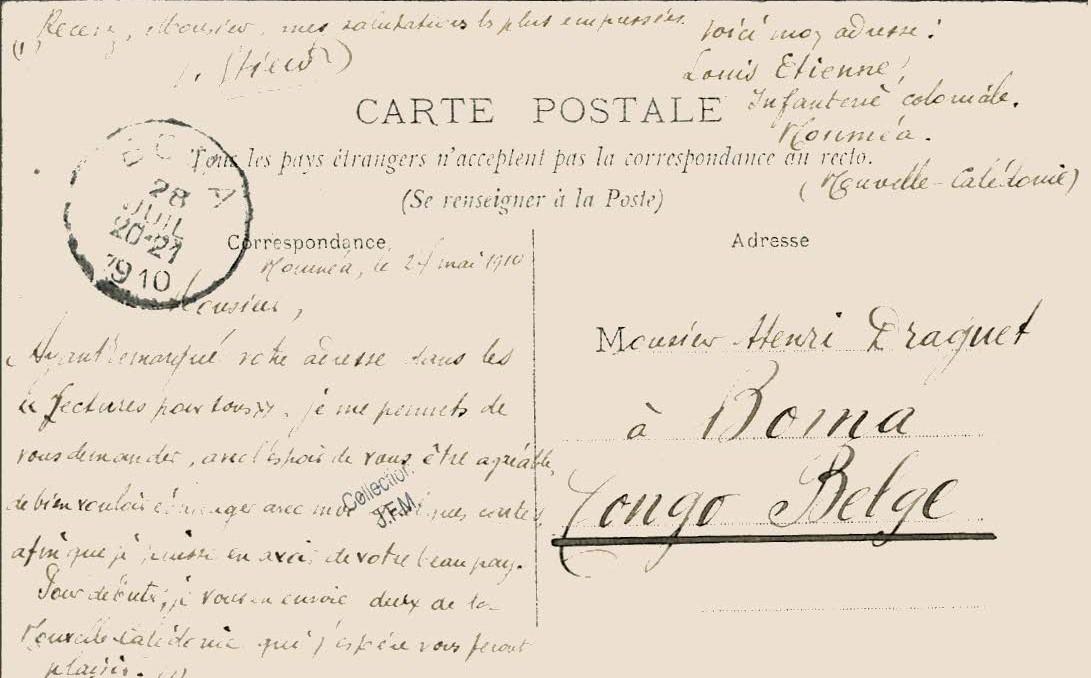 (1) Recevez, Monsieur, mes salutations les plus empressées.
Voici mon adresse:
Louis Etienne,
Infanterie coloniale.
Nouméa.
(Nouvelle-Calédonie)
CARTE POSTALE
Tous les pays étrangers n'acceptent pas la correspondance au recto.
(Se renseigner à la Poste)
BOMA
28
JUIL
20-21
1910
Correspondance
Nouméa, le 24 mai 1910
Monsieur,
Ayant remarqué votre adresse dans les
« Lectures pour tous », je me permets de
vous demander, avec l'espoir de vous être agréable,
de bien vouloir échanger avec moi quelques cartes
afin que je puisse en avoir de votre beau pays.
Pour débuter, je vous en envoie deux de la
Nouvelle-Calédonie qui j'espère vous feront
plaisir. (1)
Collection
J.F.M.
Adresse
Monsieur Henri Draguet
à Boma
Congo Belge